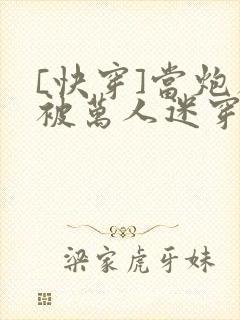 [快穿]當炮
被萬人迷穿
梁家虎牙妹